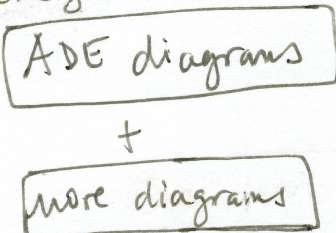 ADE diagrams
+
more diagrams